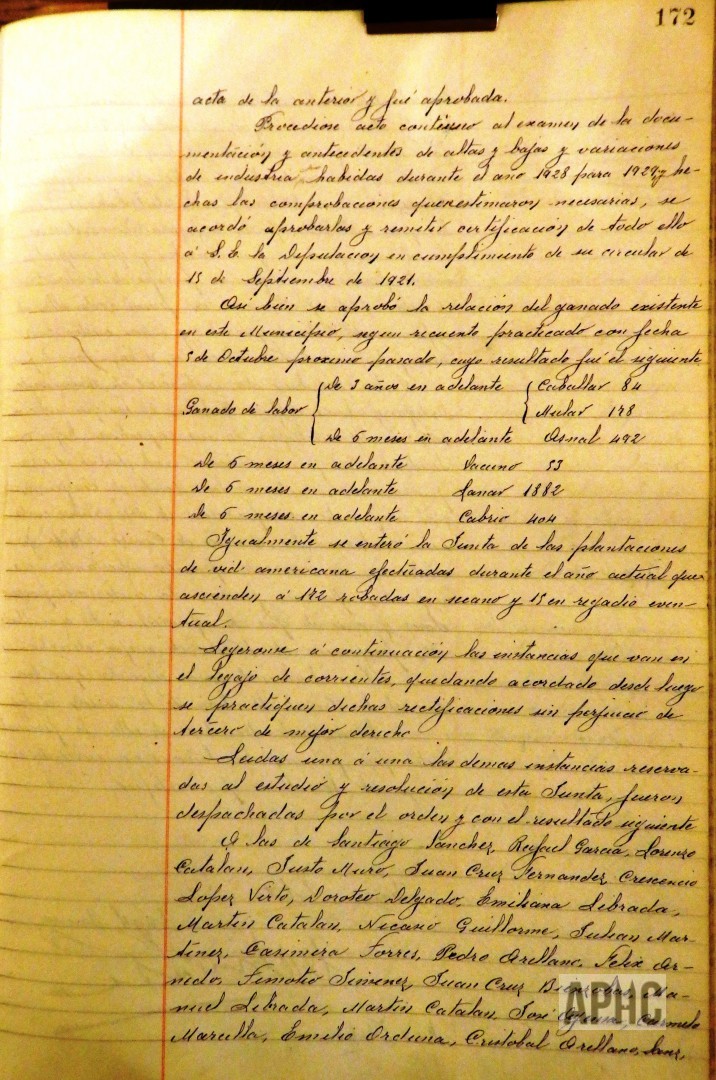 172
acta de la anterior y fué aprobada.
Procediose acto contínuo al examen de la docu-
mentación y antecedentes de altas y bajas y variaciones
de industria habidas durante el año 1928 para 1929 y he-
chas las comprobaciones que estimaron necesarias, se
acordó aprobarlas y remitir certificación de todo ello
á S.E. la Diputación en cumplimiento de su circular de
15 de Septiembre de 1921.
Así bien se aprobó la relación del ganado existente
en este Municipio, segun recuento practicado con fecha
5 de Octubre proximo pasado, cuyo resultado fué el siguiente
De 3 años en adelante Caballar 84
Ganado de labor Mular 178
De 6 meses en adelante Asnal 492
De 6 meses en adelante Vacuno 53
De 6 meses en adelante Lanar 1882
De 6 meses en adelante Cabrio 404
Igualmente se enteró la Junta de las plantaciones
de vid americana efectuadas durante el año actual que
ascienden á 172 robadas en secano y 15 en regadio even-
tual.
Leyeronse á continuación las instancias que van en
el legajo de corrientes, quedando acordado desde luego
se practiquen dichas rectificaciones sin perjuicio de
tercero de mejor derecho
Leidas una á una las demas instancias reserva-
das al estudio y resolución de esta Junta, fueron
despachadas por el orden y con el resultado siguiente
A las de Santiago Sanchez, Rafael Garcia, Lorenzo
Catalan, Justo Muro, Juan Cruz Fernandez, Crescencio
Lopez Virto, Doroteo Delgado, Emiliana Librada,
Martin Catalan, Nicano Guillorme, Julian Mar-
tinez, Casimira Torres, Pedro Arellano, Felix Ar-
nedo, Timoteo Jimenez, Juan Cruz Ma-
nuel Librada, Martin Catalan, José Carmelo
Marcilla, Emilio Orduna, Cristobal Arellano,
APHC